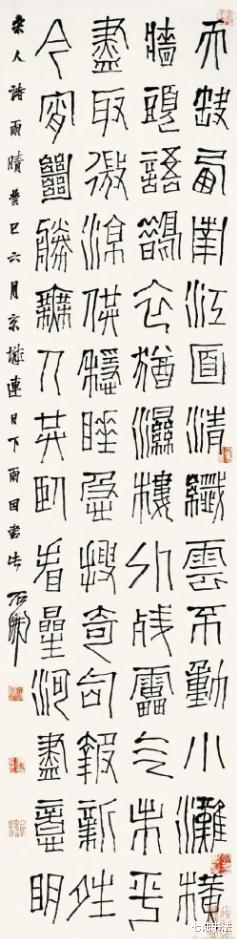 天缺西南江面清纖雲不動小灘橫
牆頭語鵲衣猶濕樓外殘雷气未平
盡取微涼供穩睡急搜奇句報新晴
今宵絕勝無人共臥看星河盡意明
宋人詩雨晴癸巳六月京城連日下雨因書此石開